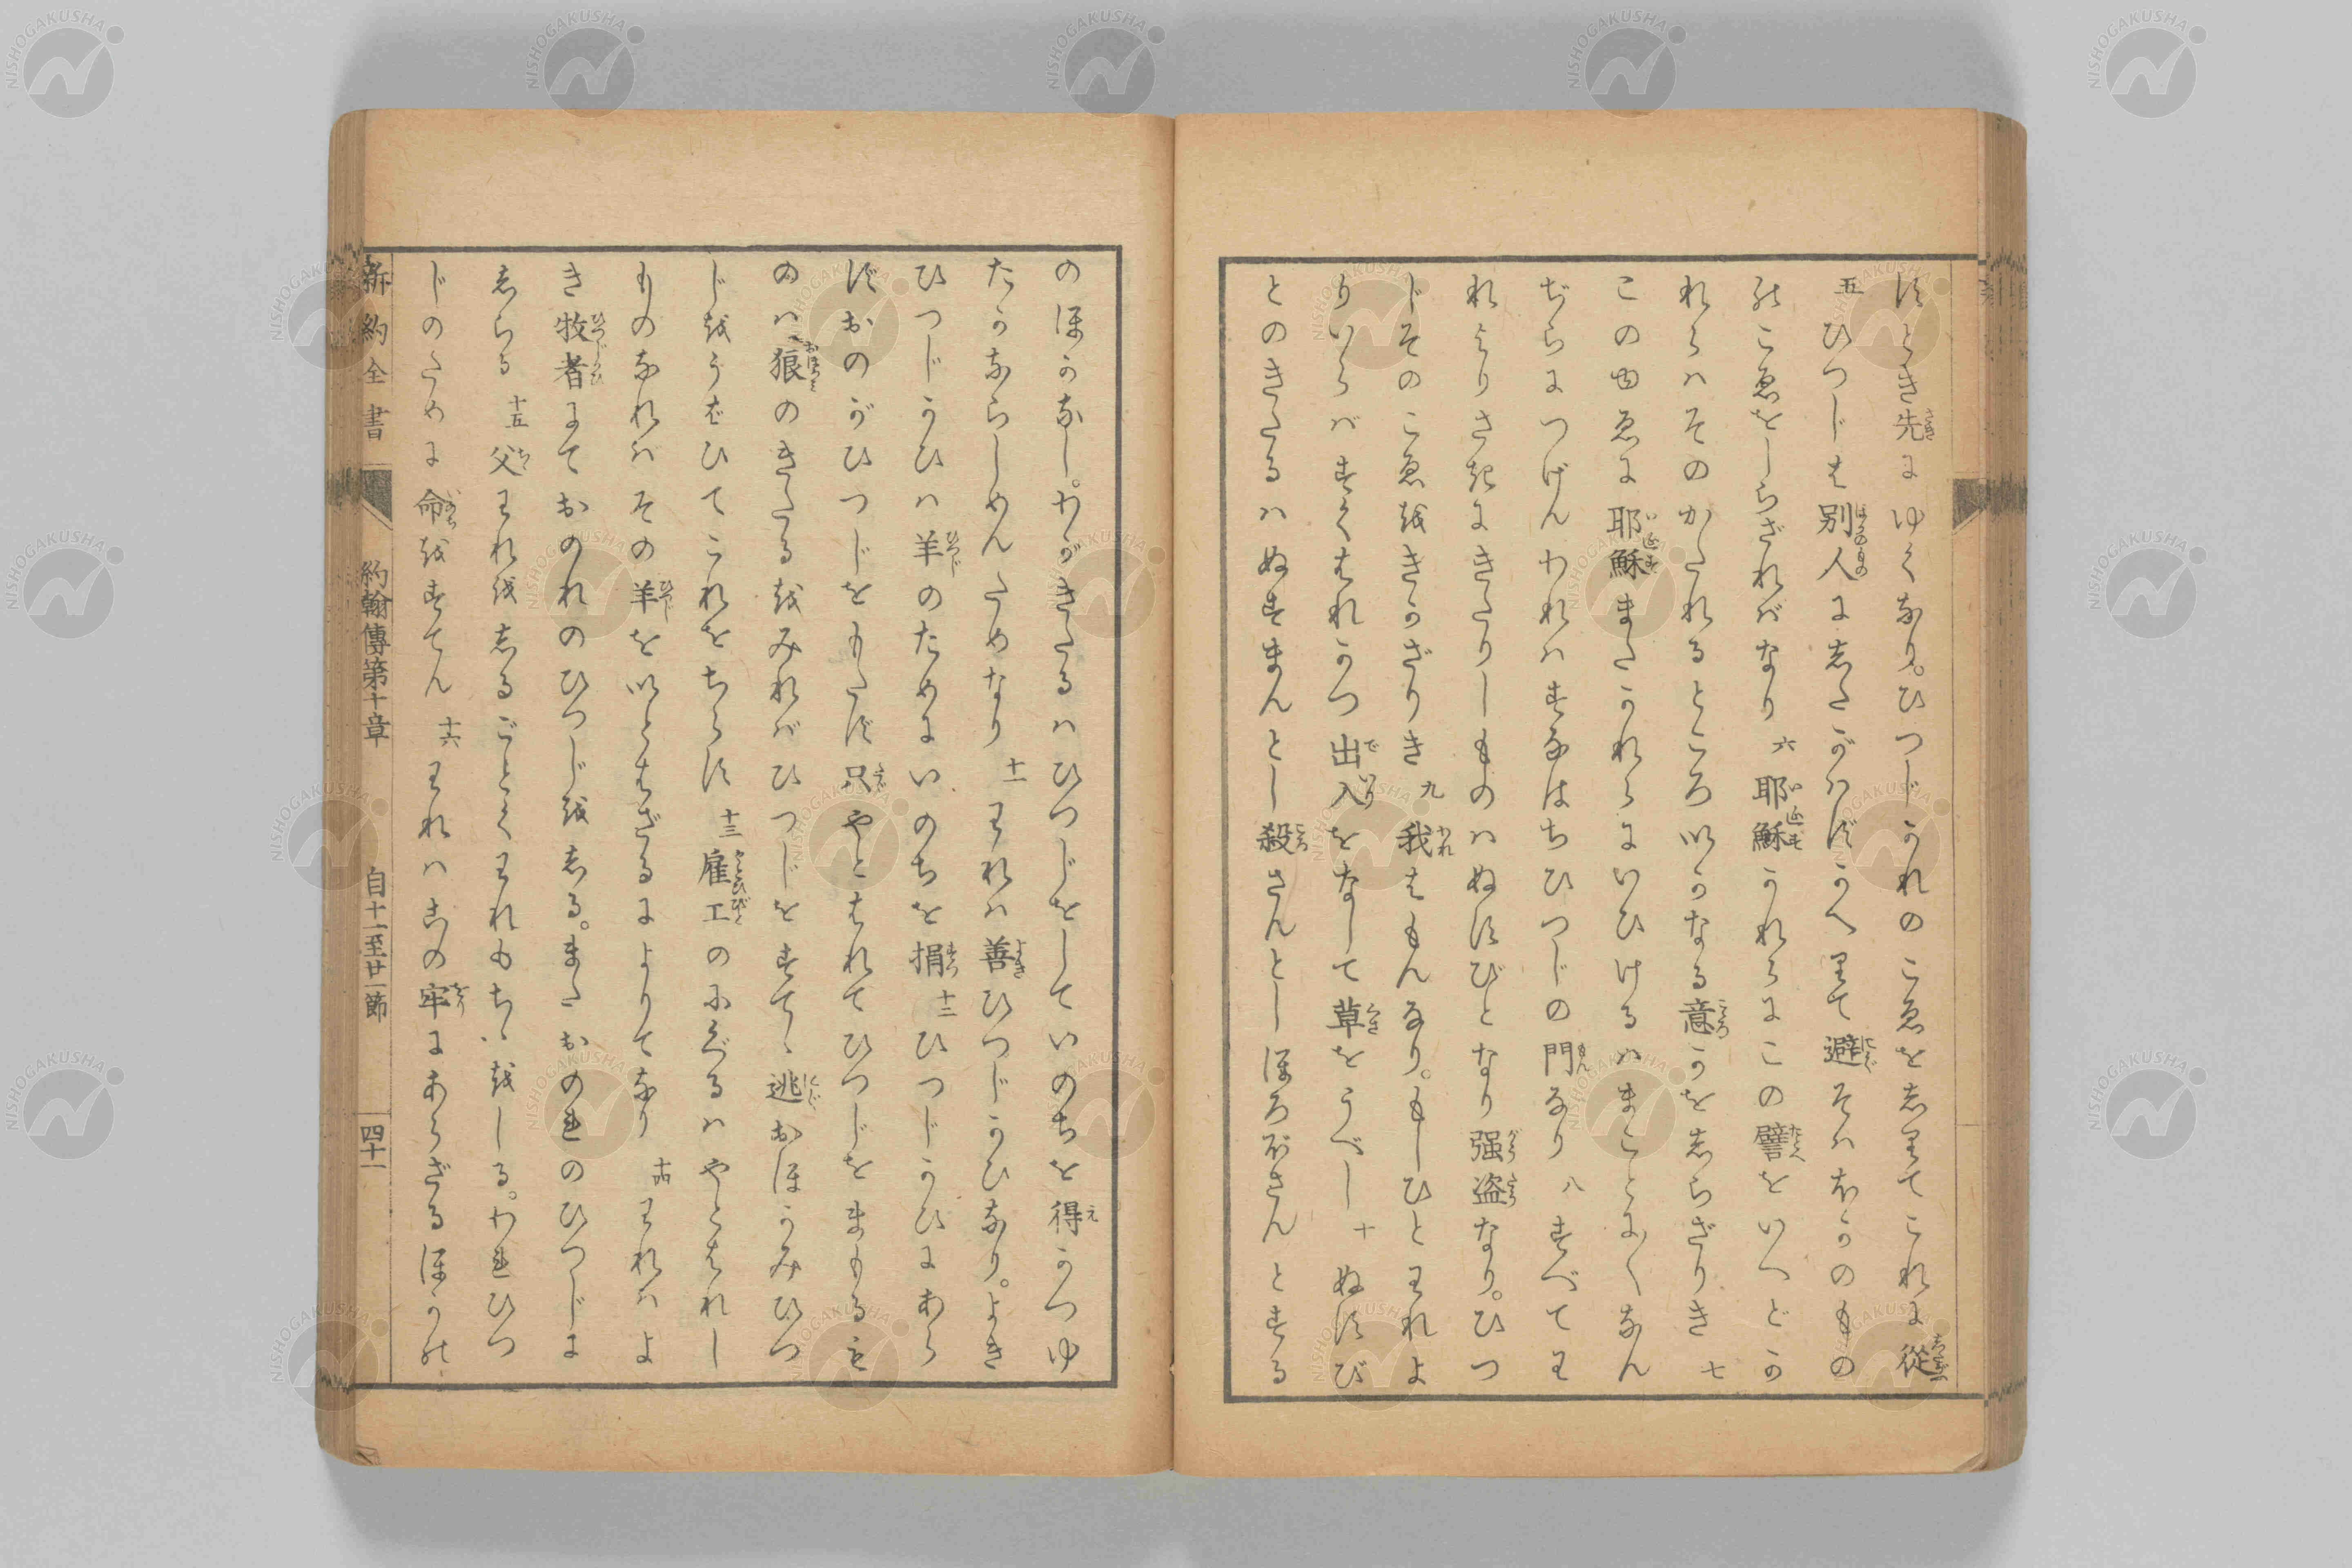 すとき先にゆくなり。ひつじかれのこゑをしりてこれに從
五 ひつじは別人にしたがハずかへりて避そハほかのもの
のこゑをしらざれバなり 六 耶穌かれらにこの譬をいへどか
れらハそのかたれるところいかなる意かを志らざりき 七
このゆゑに耶穌またかれらにいひけるハまことに〱なん
ぢらにつげんわれハすなはちひつじの門なり 八 すべてわ
れよりさきにきたりしものハぬすびとなり强盗なり。ひつ
じそのこゑをきかざりき 九 我はもんなり。もしひとわれよ
りいらバすくはれかつ出入をなして草をうべし 十 ぬすび
とのきたるハぬすまんとし殺さんとしほろぼさんとする
のほかなし。わがきたるハひつじをしていのちを得かつゆ
たかならしめんためなり 十一 われハ善ひつじかひなり。よき
ひつじかひハ羊のためにいのちを捐 十二 ひつじかひにあら
ずおのがひつじをもたず只やとはれてひつじをまもるも
のハ狼のきたるをみれバひつじをすてゝ逃おほかみひつ
じをうばひてこれをちらす 十三 雇工のにぐるハやとはれし
ものなれハその羊をいとはざるによりてなり 十四 われハよ
き牧者にておのれのひつじを志る。またおのれのひつじに
志らる 十五 父われを志るごとくわれもちゝをしる。われひつ
じのために命をすてん 十六 われハこの牢にあらざるほかの
新約全書
約翰傳第十章
自十一至廿一節
四十一